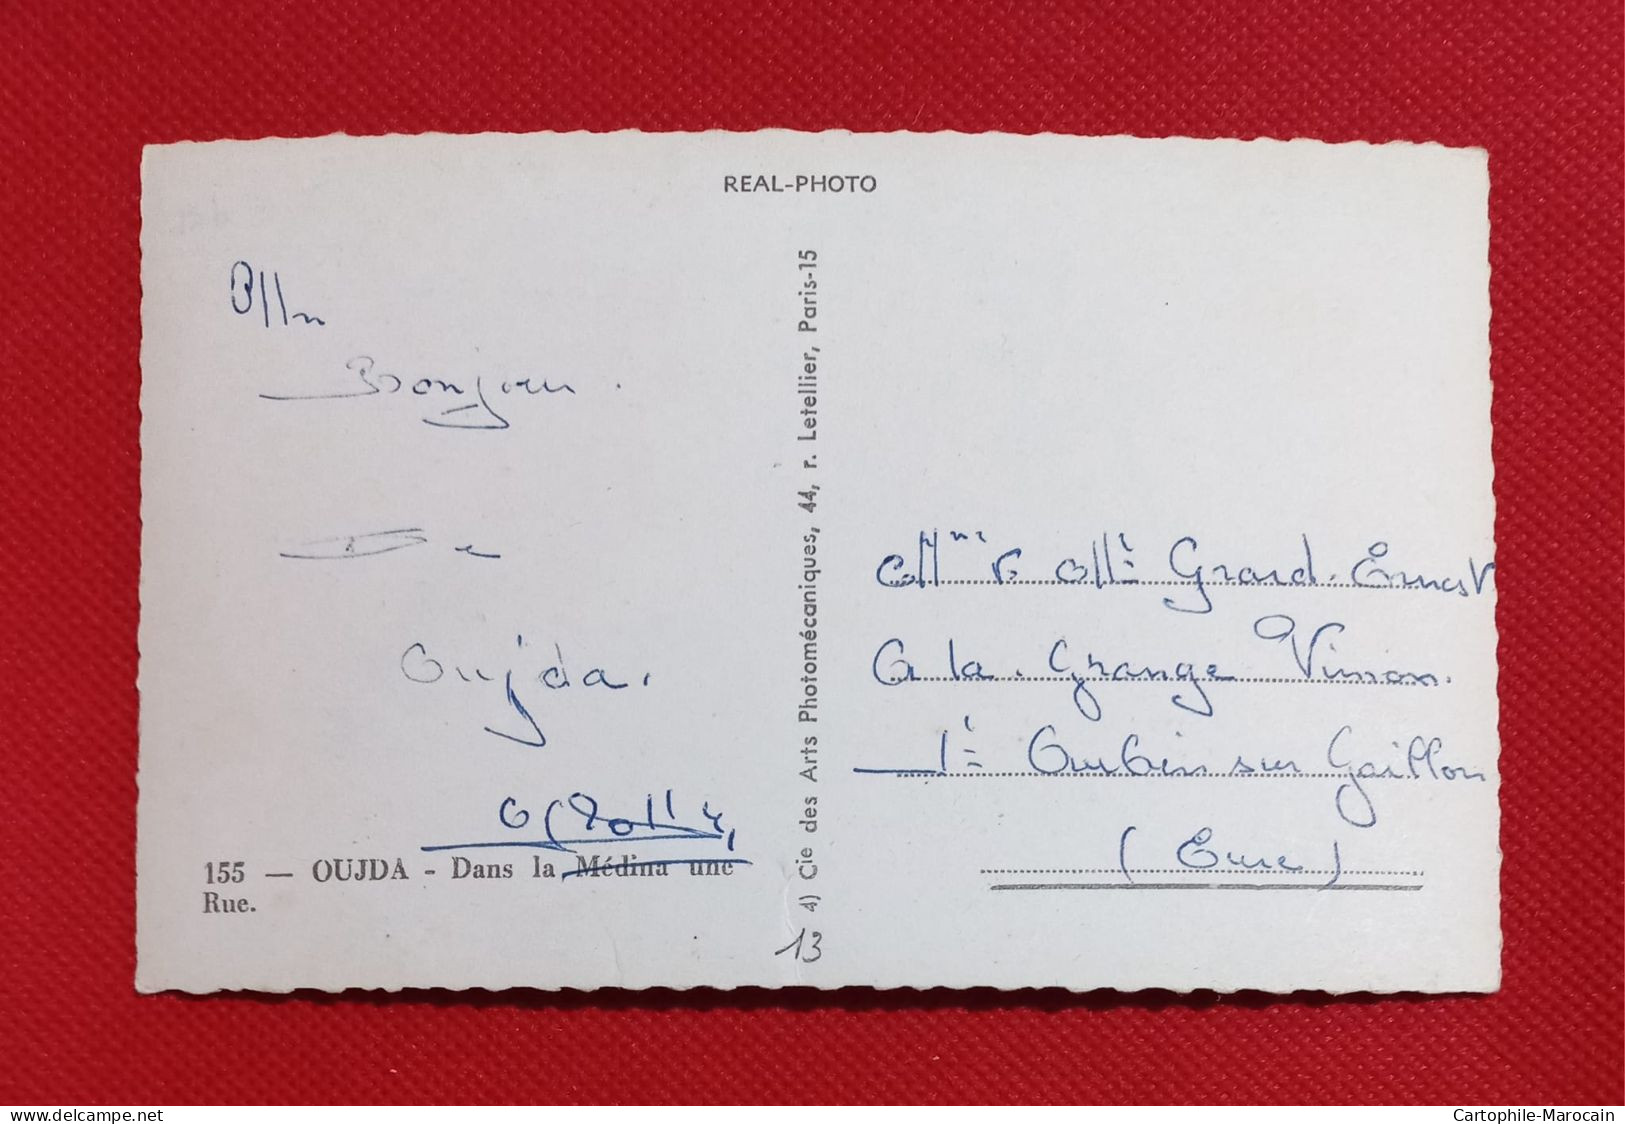 REAL-PHOTO
Bonjour.
De
Oujda.
155 — OUJDA - Dans la Médina une
Rue.
4) Cie des Arts Photomécaniques, 44, r. Letellier, Paris-15
13
Grard. Ernest
a la. Grange
Aubin sur Gaillon
(Eure)
delcampe.net
Cartophile-Marocain